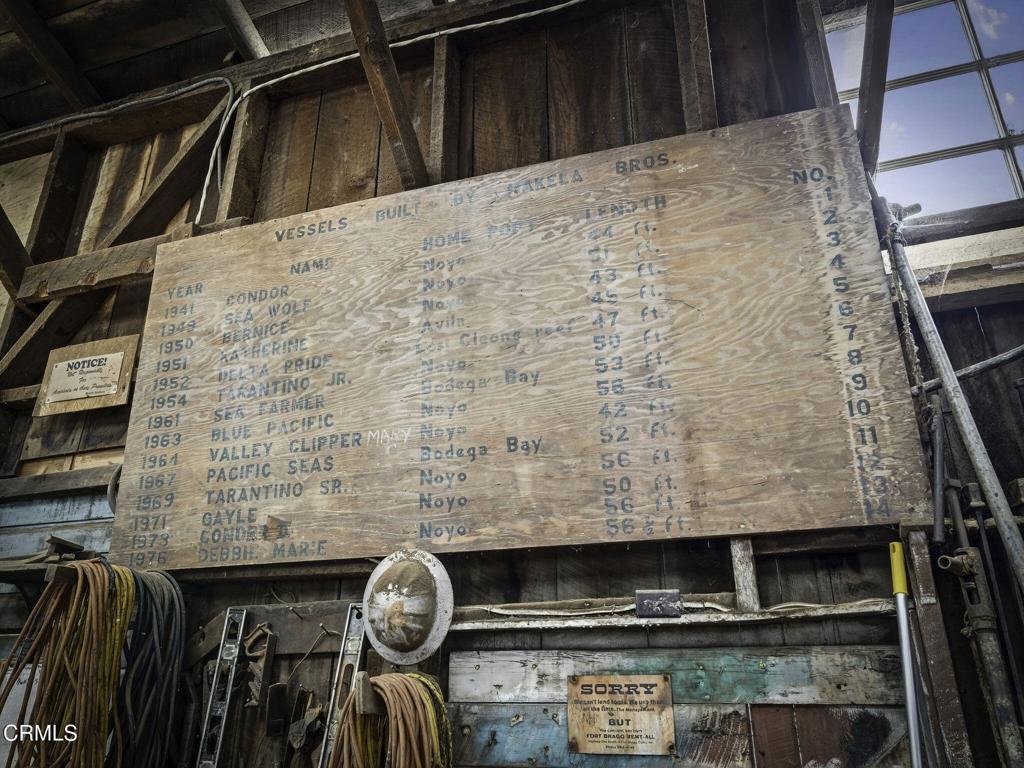 VESSELS BUILT BY MAKELA BROS.
YEAR
1941
1949
1950
1951
1952
1954
1961
1963
1964
1967
1969
1971
1973
1976
NAME
CONDOR
SEA WOLF
BERNICE
KATHERINE
DELTA PRIDE
TARANTINO JR.
SEA FARMER
BLUE PACIFIC
VALLEY CLIPPER MARY
PACIFIC SEAS
TARANTINO SR.
GAYLE
CONDOR II
DEBBIE MARIE
HOME PORT
Noyo
Noyo
Noyo
Avila
Lost Cleone reef
Noyo
Bodega Bay
Noyo
Noyo
Bodega Bay
Noyo
Noyo
Noyo
LENGTH
44 ft.
51 ft.
43 ft.
45 ft.
47 ft.
50 ft.
53 ft.
56 ft.
42 ft.
52 ft.
56 ft.
50 ft.
56 ft.
56 ½ ft.
NO.
1
2
3
4
5
6
7
8
9
10
11
12
13
14
NOTICE!
Not Responsible
For
SORRY
We can't lend tools. We use them
all the time. The Management
BUT
You can rent them from
FORT BRAGG RENT-ALL
CRMLS